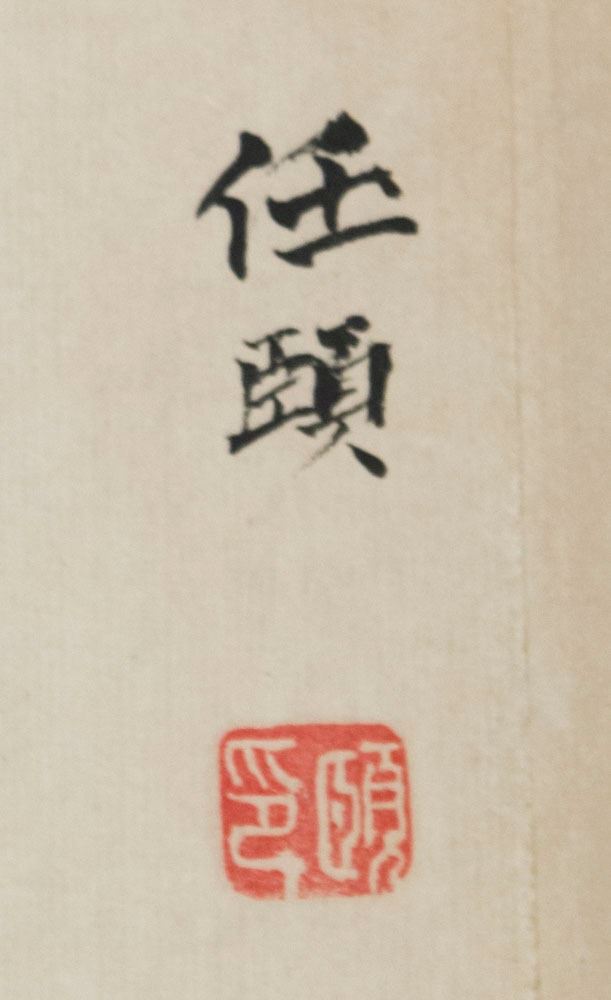 任頤
頤印